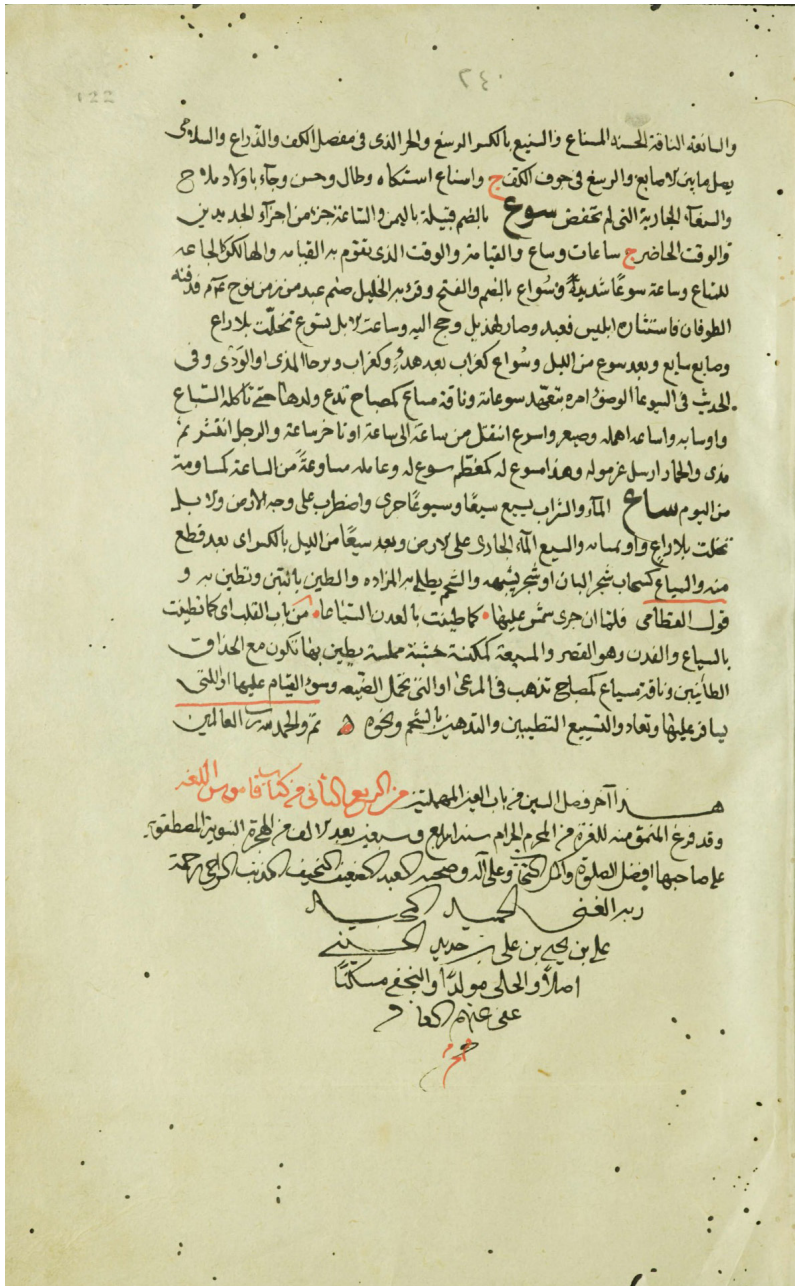 ٢٤٠
122
والسانعة الناقة الحسنة المسناع والسنع بالكسر الرسغ والحز الذى فى مفصل الكف والذراع والسلامى
يصل ما بين الاصابع والرسغ فى جوف الكف ج واسناع استكاه وطال وحسن وجاء باولاد ملاح
الجارية التى لم تخفض سوع بالضم قبيلة باليمن والساعة جزء من اجزآء الجديدين
والوقت الحاضر ج ساعات وساع والقيامة والوقت الذى تقوم به القيامة والهالكون كالجاعة
للجياع وساعة سوعآ شديدة وسواع بالضم والفتح وقرء به الخليل صنم عبد من زمن نوح عم فدفنه
الطوفان فاستثاره ابليس فعبد وصار لهذيل وحج اليه وساعت الابل تسوع تخلت بلا راع
وضايع سايع وبعد سوع من الليل وسواع كغراب بعد هدء وكغراب وبرحا المذى او الودى وفى
الحديث فى السوعآ الوضوء امره بتعهد سوعائه وناقة مسياع كمصباح تدع ولدها حتى تاكله السباع
واساعه اهمله وضيعه واسوع انتقل من ساعة الى ساعة او تاخر ساعة والرجل انتشر ثم
مذى والحمار ارسل غرموله وهذا مسوع له كمعظم سوع له وعامله مساوعة من الساعة كمياومة
من اليوم ساع المآء والشراب يسيع سيعا وسيوعا جرى واضطرب على وجه الارض والابل
تخلت بلا راع والسيع المآء الجارى على الارض وبعد سيعا من الليل بالكسر اى بعد قطع
منه والسياع كسحاب شجر البان او شجر يشبهه والشحم يطلى به المزاده والطين بالتبن وتطين به و
قول القطامى فلما ان جرى سمن عليها كما طينت بالفدن السياعا من باب القلب اى كما طينت
بالسياع والفدن وهو القصر والمسيعة كمكنسة خشبة مملسة يطين بها تكون مع الحذاق
الطآنين وناقة مسياع كمصباح تذهب فى المرعى او التى تحمل الضيعه وسوء القيام عليها او اللتى
يسافر عليها وتعاد والتسييع التطيين والتدهين بالشحم ونحوه تم والحمد لله رب العالمين
هذا آخر فصل السين من باب العين المهملتين من الربع الثانى من كتاب قاموس اللغه
وقد فرغ المنمق منه للغرة من المحرم الحرام سنة اربع وسبعين بعد الالف من الهجرة النبوية المصطفوية
على صاحبها افضل الصلوة واكمل التحيات وعلى آله وصحبه العبد الضعيف النحيف المذنب الراجى رحمة
ربه الغنى الحميد المجيد
على بن يحيى بن على بن حديد الحسينى
اصلآ والحلى مولدآ والنجفى مسكنآ
عفى عنهم